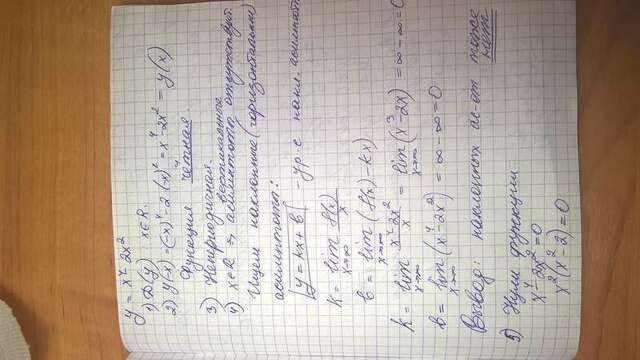 y = x⁴ - 2x²
1) D(y) x∈R.
2) y(-x) = (-x)⁴ - 2(-x)² = x⁴ - 2x² = y(x)
функция четная.
3) Непериодичная.
вертикальные
4) x∈R ⇒ асимптоты отсутствуют.
Ищем наклонные (горизонтальные)
асимптоты:
y = kx + b - ур-е накл. асимптот
k = lim x→∞ f(x)/x
b = lim x→∞ (f(x) - kx)
k = lim x→∞ (x⁴ - 2x²)/x = lim x→∞ (x³ - 2x) = ∞ - ∞ = 0
b = lim x→∞ (x⁴ - 2x²) = ∞ - ∞ = 0
Вывод: наклонных ас-от
нет
5) Нули функции
x⁴ - 2x² = 0
x²(x² - 2) = 0